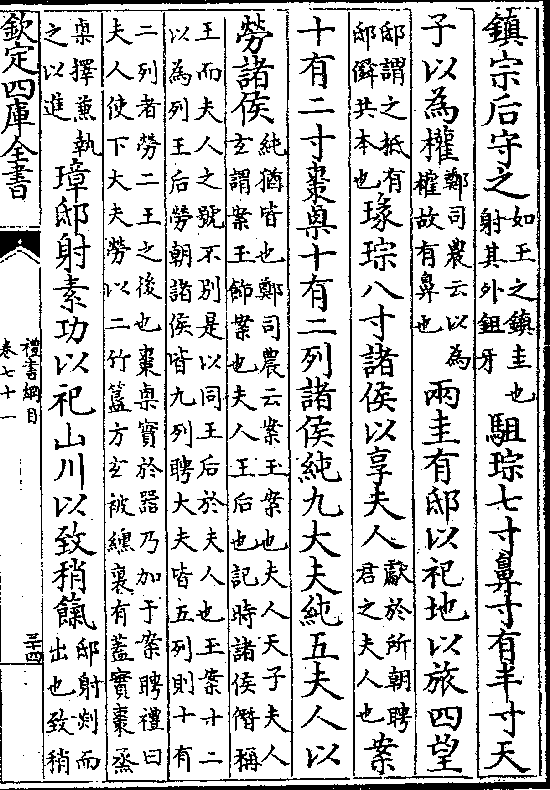 鎮宗后守之如王之鎮圭也射其外鉏牙駔琮七寸鼻寸有半寸天
子以為權鄭司農云以為權故有鼻也兩圭有邸以祀地以旅四望
邸謂之抵有邸僢共本也瑑琮八寸諸侯以享夫人獻於所朝聘君之夫人也案
十有二寸棗㮚十有二列諸侯純九大夫純五夫人以
勞諸侯純猶皆也鄭司農云案玉案也夫人天子夫人
玄謂案玉飾案也夫人王后也記時諸侯僭稱
王而夫人之號不别是以同王后於夫人也玉案十二
以為列王后勞朝諸侯皆九列聘大夫皆五列則十有
二列者勞二王之後也棗㮚實於器乃加于案聘禮曰
夫人使下大夫勞以二竹簋方玄被纁裏有葢實棗烝
㮚擇兼執之以進璋邸射素功以祀山川以致稍餼邸射剡而出也致稍
欽定四庫全書
禮書綱目
卷七十一
三十四